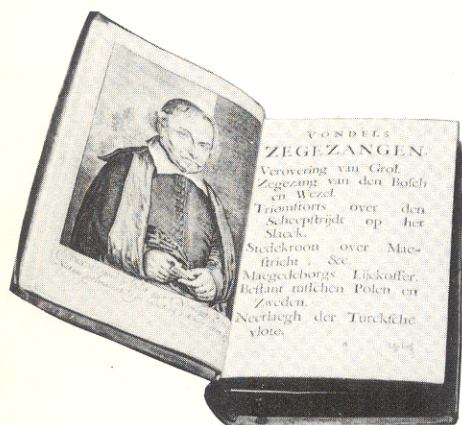 VONDELS
ZEGEZANGEN.
Verovering van Grol.
Zegezang van den Bosch
en Wezel.
Triomftorts over den
Scheepstrijdt op het
Slaeck.
Stedekroon over Mae-
stricht. &c.
Maegdeborgs Lijckoffer.
Bestant tusschen Polen en
Zweden.
Neerlaegh der Turcksche
vlote.